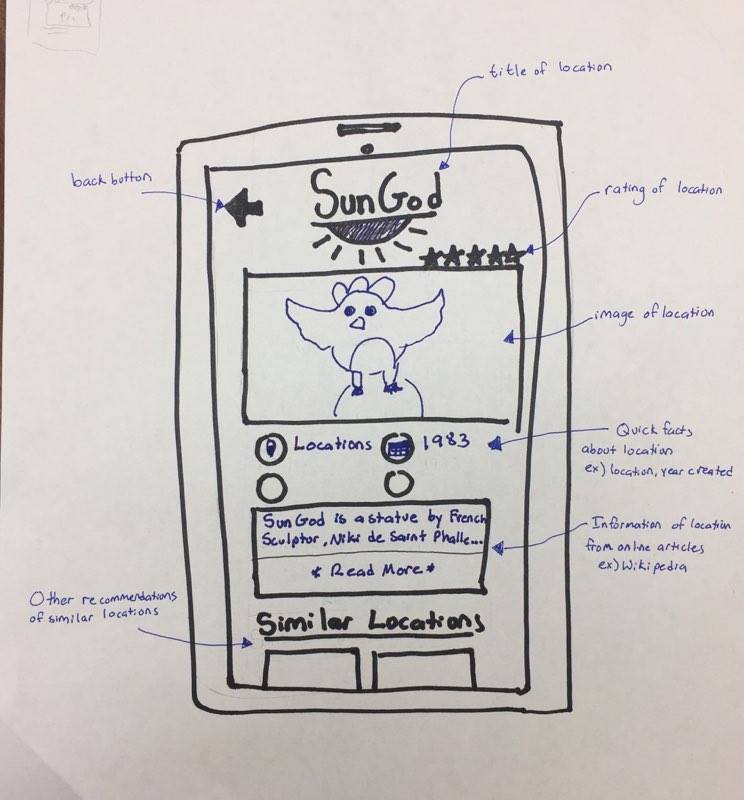 title of location
back button
Sun God
rating of location
image of location
Locations 1983
Quick facts
about location
ex) location, year created
Sun God is a statue by French
Sculptor, Niki de Saint Phalle...
* Read More *
Information of location
from online articles
ex) Wikipedia
Other recommendations
of similar locations
Similar Locations